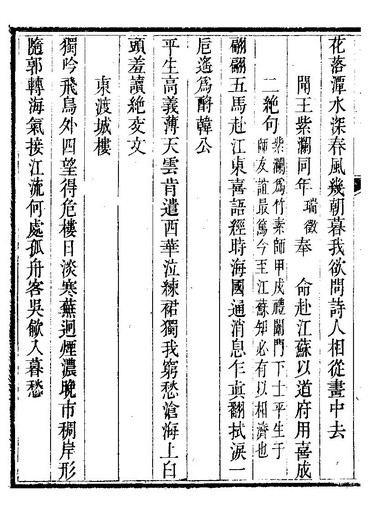 花落潭水深春風幾朝暮我欲問詩人相從畫中去
聞王紫瀾同年瑞徵奉　命赴江蘇以道府用喜成
二絶句紫瀾爲竹素師甲戌禮闈門下士平生于
師友誼最篤今至江蘇知必有以相濟也
翩翩五馬赴江東喜語經時海國通消息乍眞翻拭淚一
巵遙爲酹韓公
平生高義薄天雲肯遣西華泣練裙獨我窮愁滄海上白
頭羞讀絶交文
東渡城樓
獨吟飛鳥外四望得危樓日淡寒蕪迥煙濃晚市稠岸形
隨郭轉海氣接江流何處孤舟客吳歈入暮愁